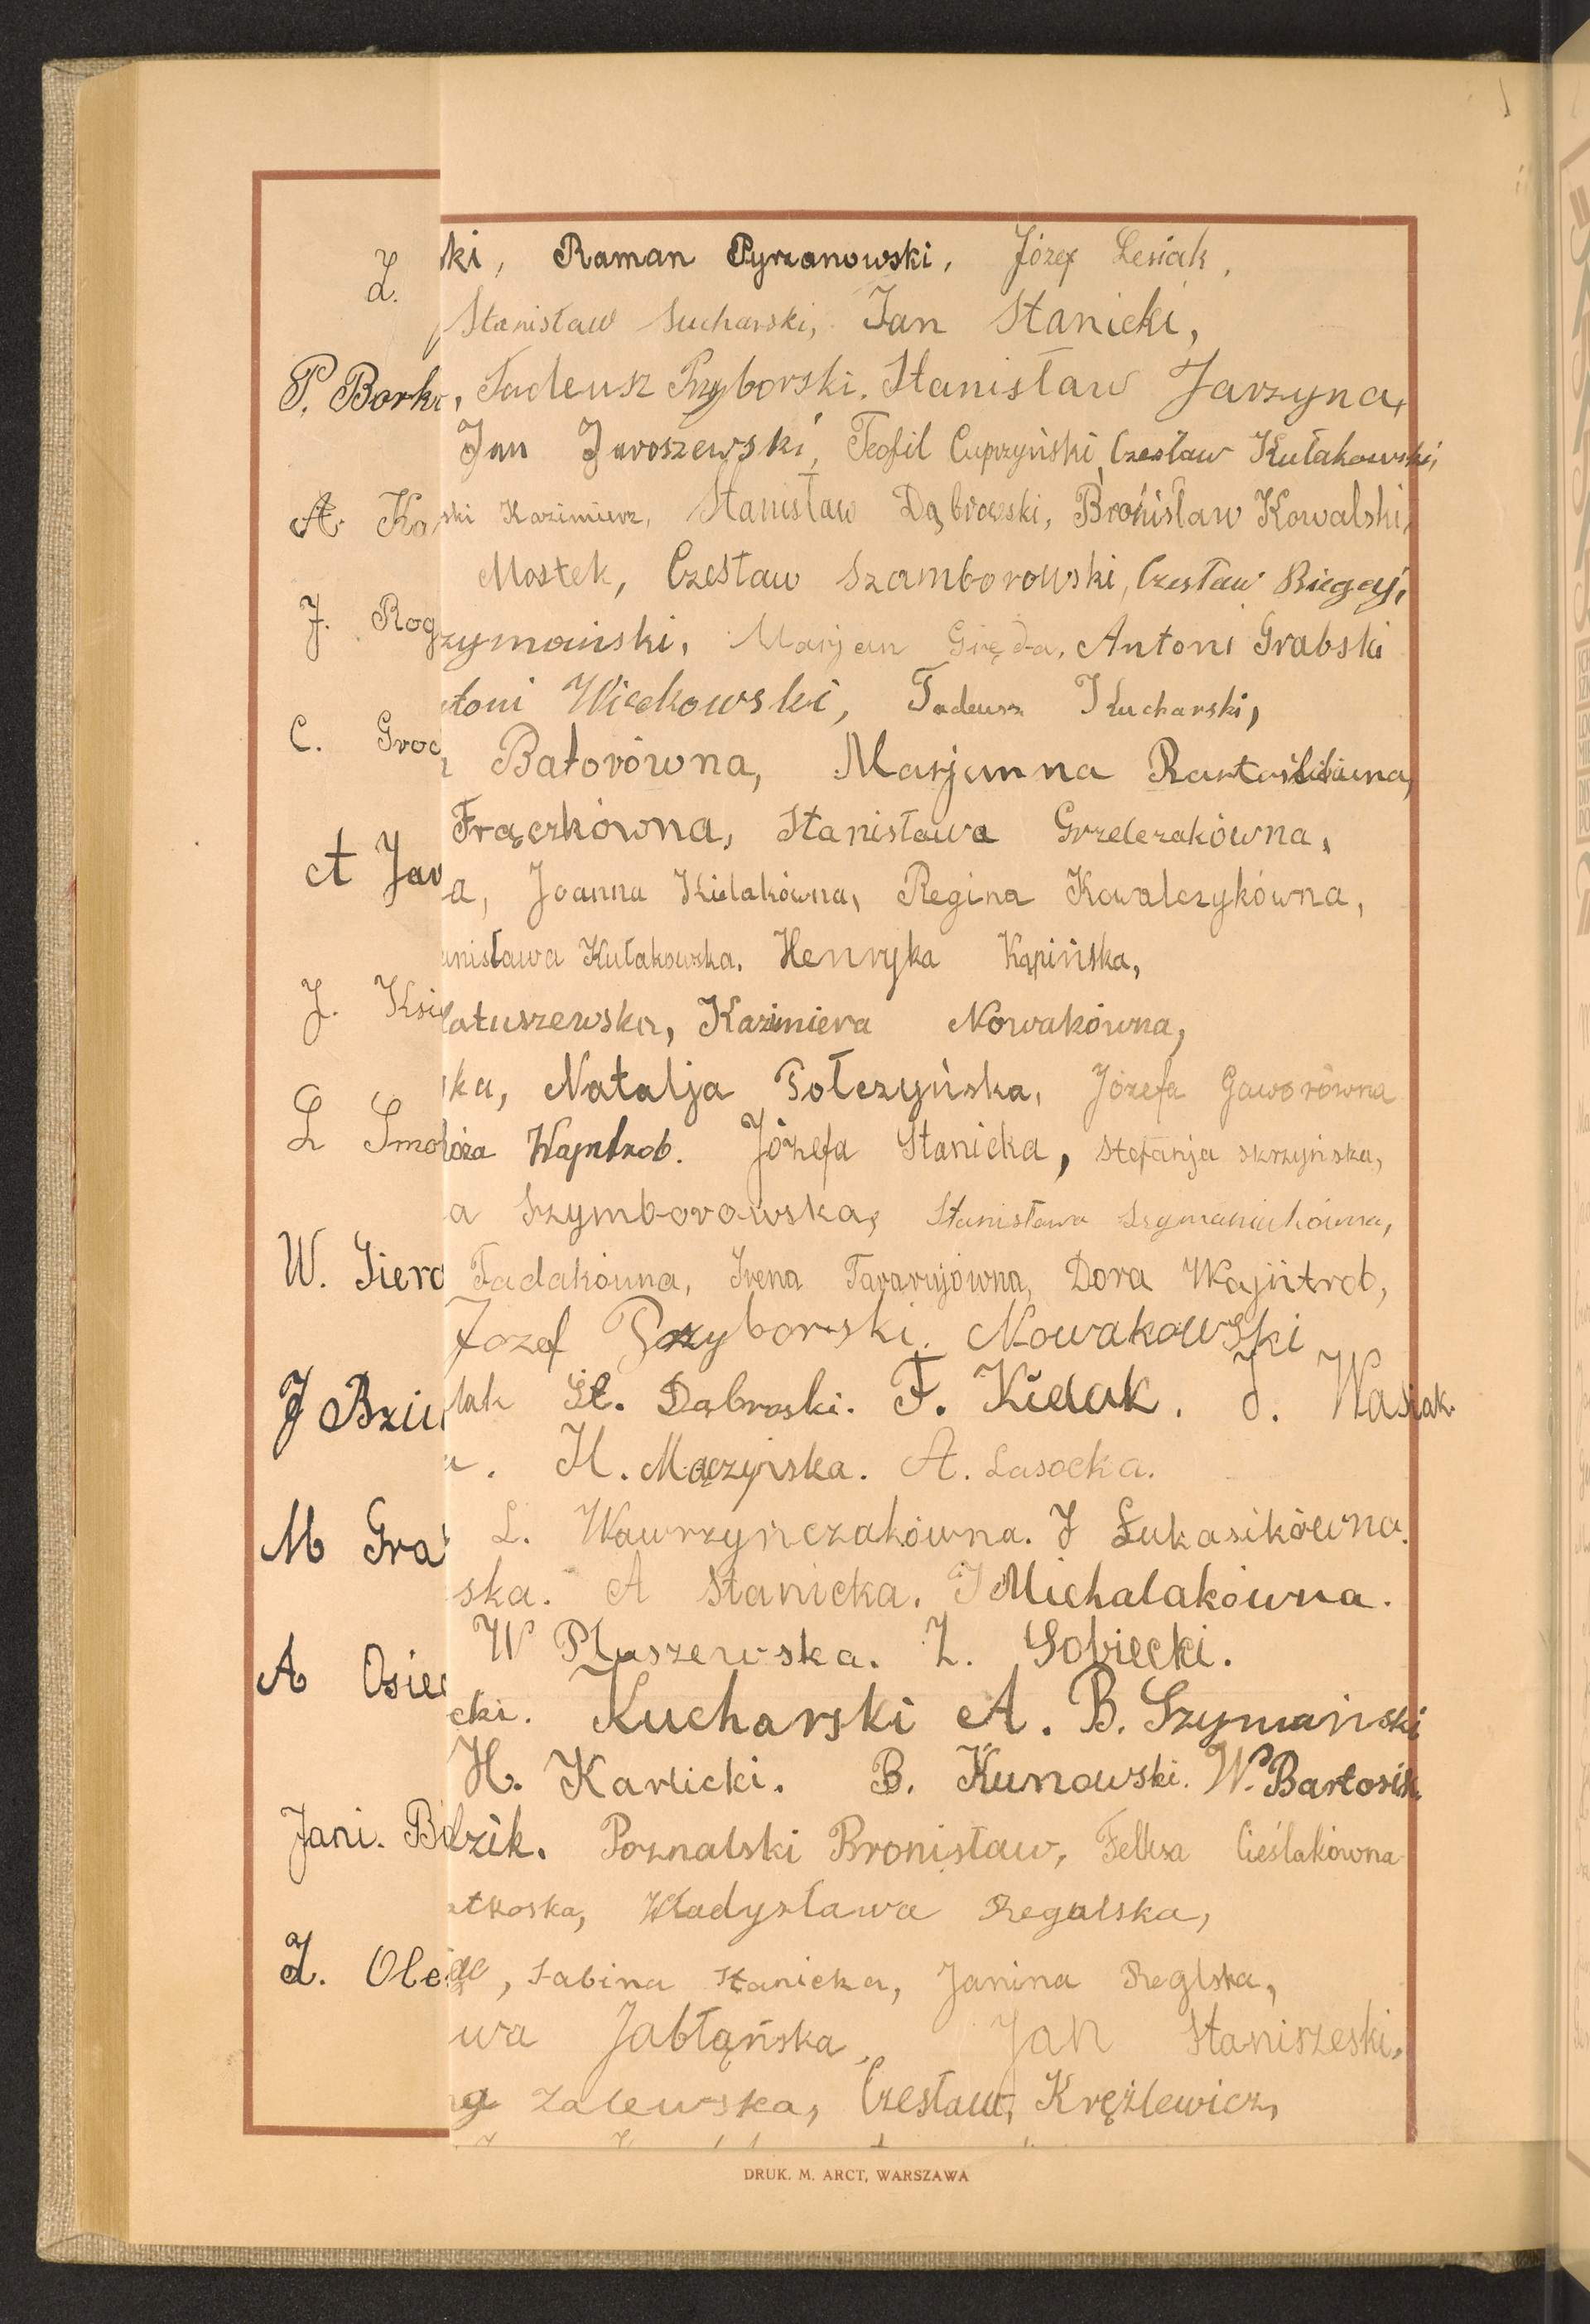 Z. ki, Raman Pyrzanowski, Józef Lesiak,
Stanisław Sucharski, Jan Stanicki,
P. Bork , Tadeusz Przyborski, Stanisław Jarzyna,
Jan Jaroszewski, Teofil Cuprzyński, Czesław Kułakowski,
A. Ko ski Kazimierz, Stanisław Dąbrowski, Bronisław Kowalski,
Mostek, Czesław Szamborowski, Czesław Biegaj,
J. Rog zymański, Marjan Antoni Grabski
toni Wiekowski, Tadeusz Kucharski,
C. Groc Batorówna, Marjanna
Frączkówna, Stanisława Grzelczakówna,
A Jaw a, Joanna Kielakówna, Regina Kowalczykówna,
anisława Kułakowska, Henryka Kąpińska,
J. Księ atuszewska, Kazimiera Nowakówna,
ka, Natalja Tołczyńska, Józefa Gaworówna
L Smol óża Wajntrob. Józefa Stanicka, Stefanja Skrzyńska,
a Szymborowska, Stanisława Szymaniukówna,
W. Siero Tadakówna, Irena Tararujówna, Dora Wajntrob,
Józef Przyborski, Nowakowski
J Bziu lak St. Dąbroski. F. Kielak. J. Wasiak.
a. H. Mączyńska. A. Lasocka.
M Gra L. Wawrzyńczakówna. J Łukasikówna.
ska. A Stanicka. J Michalakówna.
W Płuszewska. Z. Sobiecki.
A Osiec cki. Kucharski A. B. Szymański
H. Karlicki. B. Kunowski. W. Bartosik.
Jani. B dzik. Poznalski Bronisław, Feliksa Cieślakówna
atkoska, Władysława Regulska,
Z. Ole , Sabina Stanicka, Janina Reglska,
wa Jabłąńska, Jan Staniszeski,
Zalewska, Czesław, Krężlewicz,
DRUK. M. ARCT, WARSZAWA